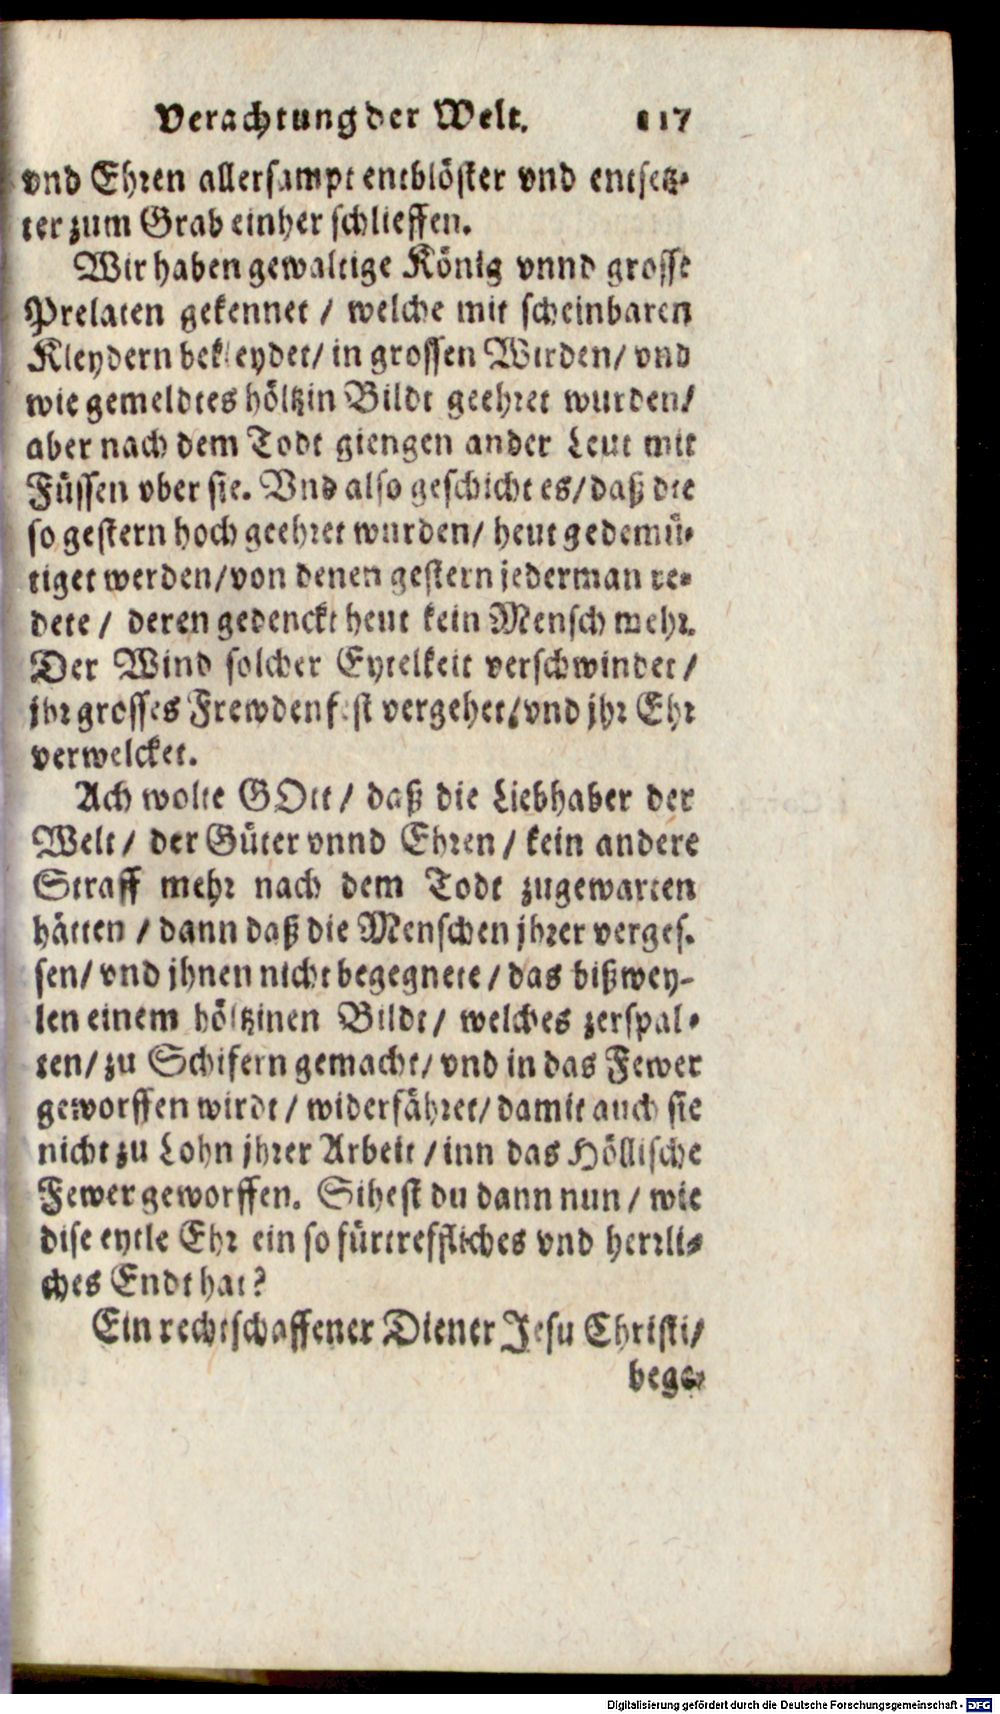 Verachtung der Welt. 117
vnd Ehren allersampt entblöster vnd entsetz-
ter zum Grab einher schlieffen.
Wir haben gewaltige König vnnd grosse
Prelaten gekennet / welche mit scheinbaren
Kleydern bekleydet / in grossen Wirden / vnd
wie gemeldtes höltzin Bildt geehret wurden /
aber nach dem Todt giengen ander Leut mit
Füssen vber sie. Vnd also geschicht es / daß die
so gestern hoch geehret wurden / heut gedemü-
tiget werden / von denen gestern jederman re-
dete / deren gedenckt heut kein Mensch mehr.
Der Wind solcher Eytelkeit verschwindet /
jhr grosses Frewdenfest vergehet / vnd jhr Ehr
verwelcket.
Ach wolte GOtt / daß die Liebhaber der
Welt / der Güter vnnd Ehren / kein andere
Straff mehr nach dem Todt zugewarten
hätten / dann daß die Menschen jhrer verges-
sen / vnd jhnen nicht begegnete / das bißwey-
len einem höltzinen Bildt / welches zerspal-
ten / zu Schifern gemacht / vnd in das Fewer
geworffen wirdt / widerfähret / damit auch sie
nicht zu Lohn jhrer Arbeit / inn das Höllische
Fewer geworffen. Sihest du dann nun / wie
dise eytle Ehr ein so fürtreffliches vnd herrli-
ches Endt hat?
Ein rechtschaffener Diener Jesu Christi /
bege-
Digitalisierung gefördert durch die Deutsche Forschungsgemeinschaft - DFG